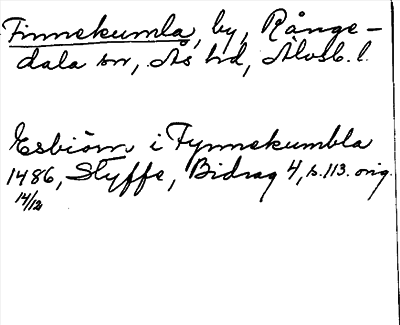 Finnekumla, by, Rånge-
dala sn, Ås hd, Älvsb. l.
Esbiörn i Fynnekumbla
1486, Styffe, Bidrag 4, s. 113. orig.
14/12